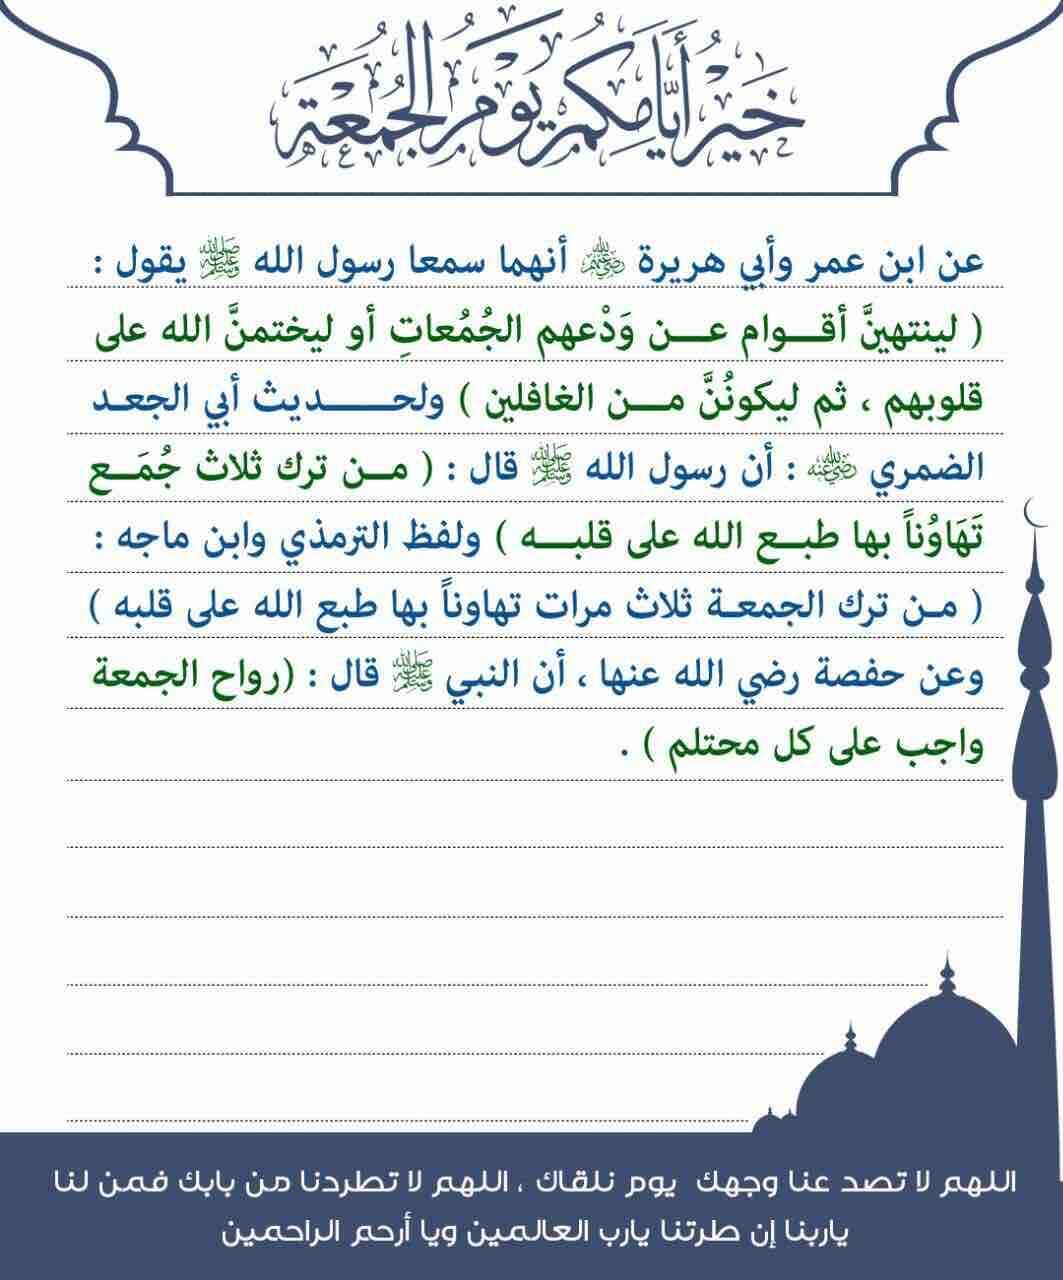 خَيْرُ أَيَّامِكُمْ يَوْمُ الْجُمُعَةِ
عن ابن عمر وأبي هريرة رضي الله عنهم أنهما سمعا رسول الله ﷺ يقول :
( لينتهينَّ أقـــوام عـــن وَدْعهم الجُمُعاتِ أو ليختمنَّ الله على
قلوبهم ، ثم ليكونُنَّ مـــن الغافلين ) ولحـــــديث أبي الجعـد
الضمري رضي الله عنه : أن رسول الله ﷺ قال : ( مـــن ترك ثلاث جُمَـــع
تَهَاوُناً بها طبـــع الله على قلبـــه ) ولفظ الترمذي وابن ماجه :
( مـن ترك الجمعـة ثلاث مرات تهاوناً بها طبع الله على قلبه )
وعن حفصة رضي الله عنها ، أن النبي ﷺ قال : (رواح الجمعة
واجب على كل محتلم ) .
اللهم لا تصد عنا وجهك يوم نلقاك ، اللهم لا تطردنا من بابك فمن لنا
ياربنا إن طرتنا يارب العالمين ويا أرحم الراحمين